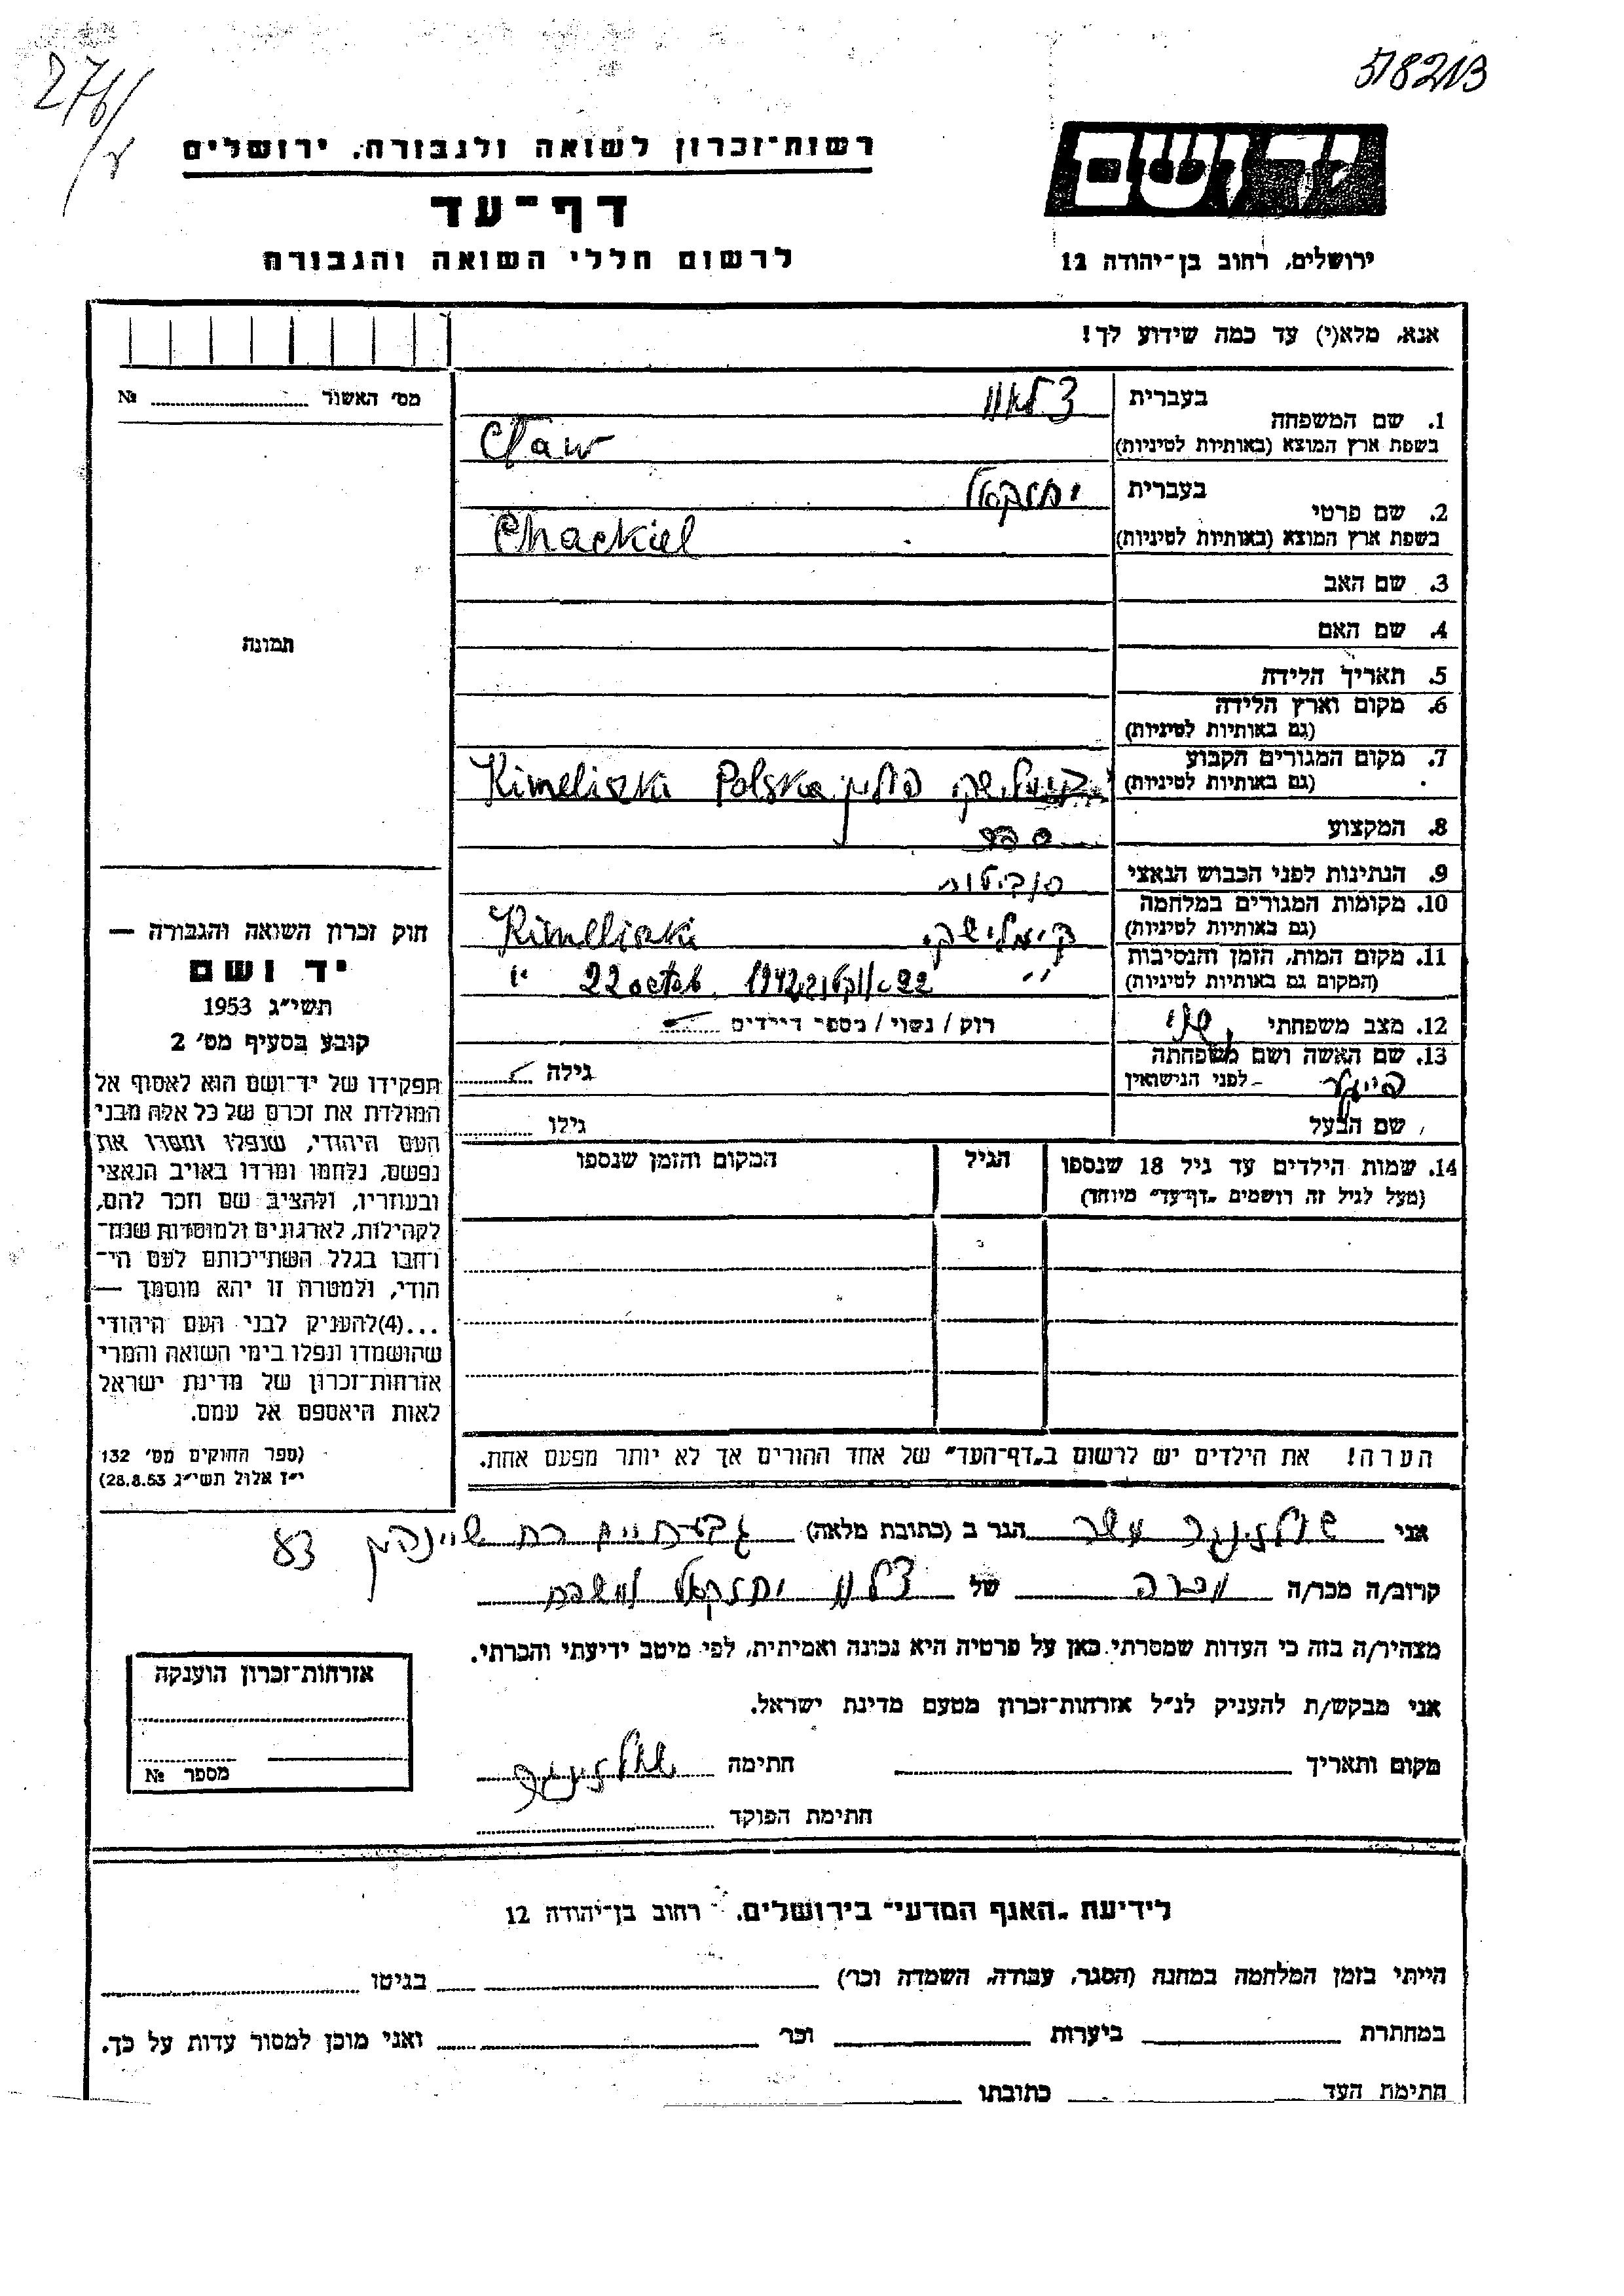 578213
276/
רשות-זכרון לשואה ולגבורה, ירושלים
דף-עד
לרשום חללי השואה והגבורה
יד ושם
ירושלים, רחוב בן-יהודה 12
אנא, מלא(י) עד כמה שידוע לך!
מס׳ האשור № 
1. שם המשפחה
בעברית
בשפת ארץ המוצא (באותיות לטיניות)
2. שם פרטי
בעברית יחזקאל
בשפת ארץ המוצא (באותיות לטיניות) Chackiel
3. שם האב
4. שם האם
תמונה
5. תאריך הלידה
6. מקום וארץ הלידה
(גם באותיות לטיניות)
7. מקום המגורים הקבוע
(גם באותיות לטיניות) פולין Kimeliszki Polska
8. המקצוע
9. הנתינות לפני הכבוש הנאצי סוביטית
10. מקומות המגורים במלחמה
(גם באותיות לטיניות) קימלישקי Kimeliszki
11. מקום המות, הזמן והנסיבות
(המקום גם באותיות לטיניות) " 22 אוקטובר 1942 22 octob. "
12. מצב משפחתי נשוי רוק / נשוי / מספר הילדים
13. שם האשה ושם משפחתה
לפני הנישואין גילה
שם הבעל גילו
14. שמות הילדים עד גיל 18 שנספו
(מעל לגיל זה רושמים „דף-עד״ מיוחד)
הגיל
המקום והזמן שנספו
חוק זכרון השואה והגבורה —
יד ושם
תשי״ג 1953
קובע בסעיף מס׳ 2
תפקידו של יד-ושם הוא לאסוף אל
המולדת את זכרם של כל אלה מבני
העם היהודי, שנפלו ומסרו את
נפשם, נלחמו ומרדו באויב הנאצי
ובעוזריו, ולהציב שם וזכר להם,
לקהילות, לארגונים ולמוסדות שנח-
רחבו בגלל השתייכותם לעם הי-
הודי, ולמטרה זו יהא מוסמך —
...(4) להעניק לבני העם היהודי
שהושמדו ונפלו בימי השואה והמרי
אזרחות-זכרון של מדינת ישראל
לאות היאספם אל עמם.
(ספר החוקים מס׳ 132
י״ז אלול תשי״ג 28.8.53)
הערה! את הילדים יש לרשום ב„דף-העד״ של אחד ההורים אך לא יותר מפעם אחת.
אני אשר הגר ב (כתובת מלאה) גבעתיים רח שיינקין
קרוב/ה מכר/ה מכרה של יחזקאל
מצהיר/ה בזה כי העדות שמסרתי כאן על פרטיה היא נכונה ואמיתית, לפי מיטב ידיעתי והכרתי.
אני מבקש/ת להעניק לנ״ל אזרחות-זכרון מטעם מדינת ישראל.
מקום ותאריך חתימה
חתימת הפוקד
אזרחות-זכרון הוענקה
מספר №
לידיעת „האגף המדעי״ בירושלים, רחוב בן-יהודה 12
הייתי בזמן המלחמה במחנה (הסגר, עבודה, השמדה וכר׳) בגיטו
במחתרת ביערות וכר׳ ואני מוכן למסור עדות על כך.
חתימת העד כתובתו